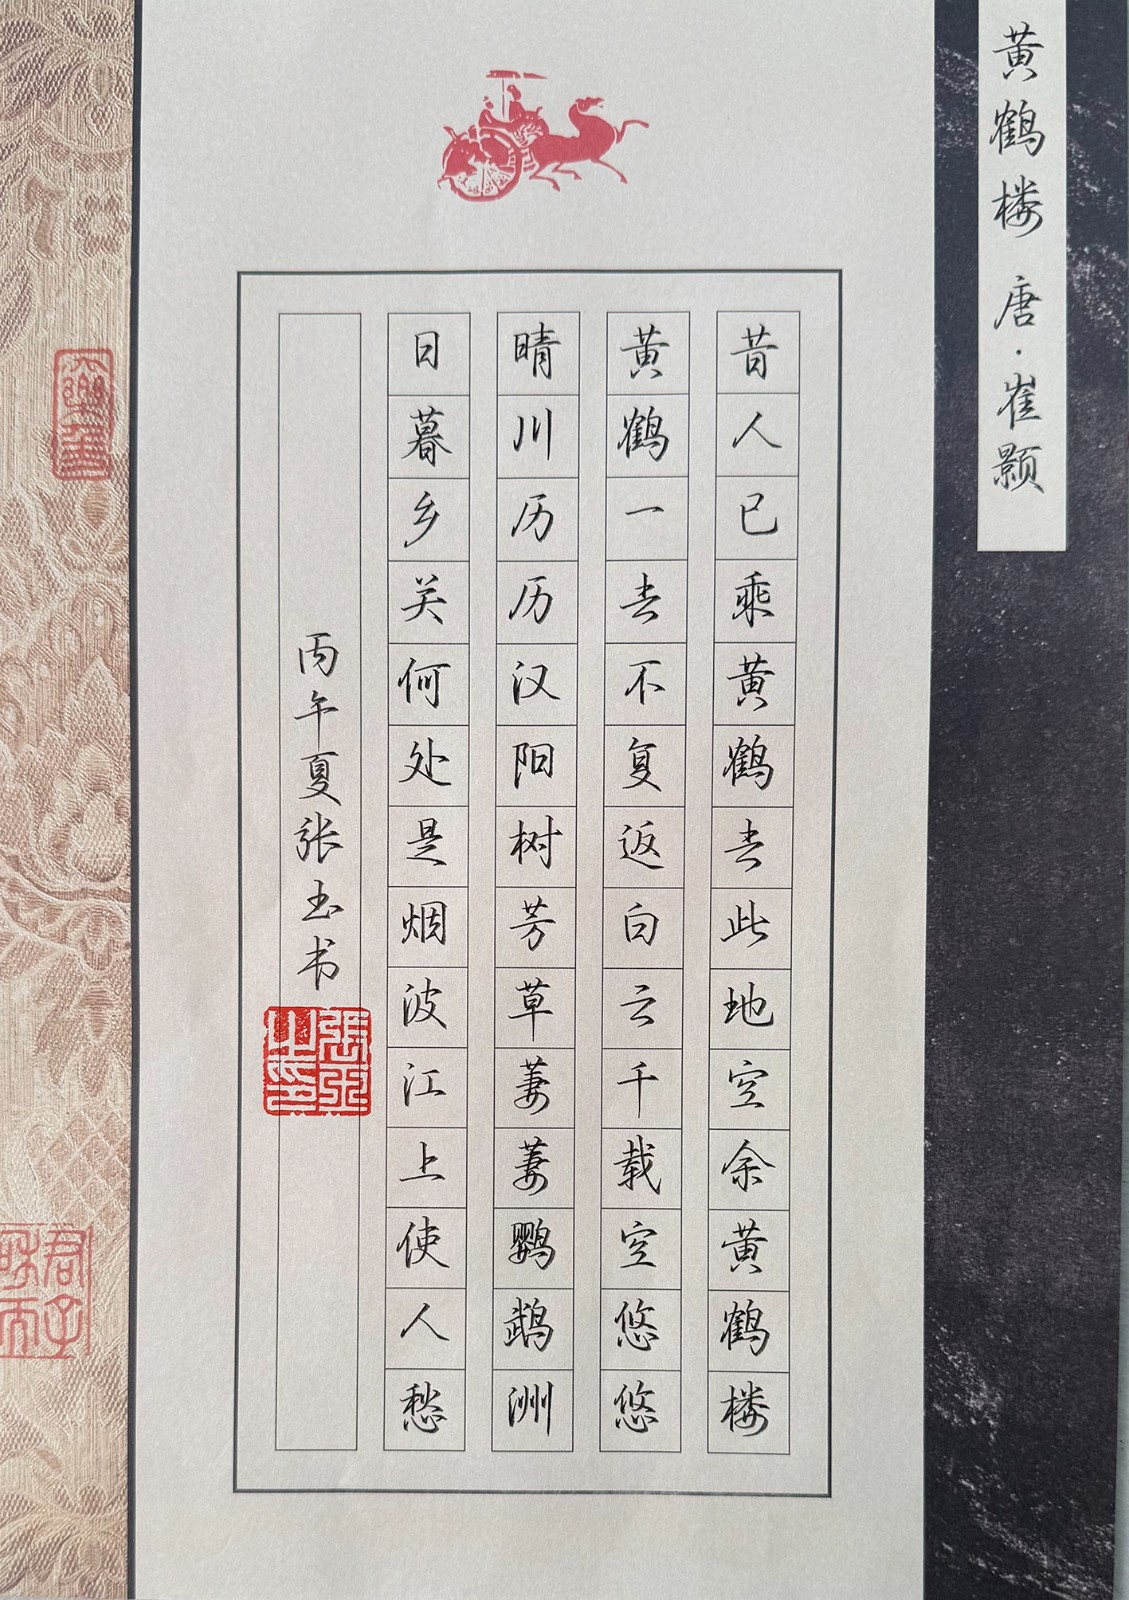 黄鹤楼 唐·崔颢
昔人已乘黄鹤去此地空余黄鹤楼
黄鹤一去不复返白云千载空悠悠
晴川历历汉阳树芳草萋萋鹦鹉洲
日暮乡关何处是烟波江上使人愁
丙午夏张玉书
張玉之印
君子